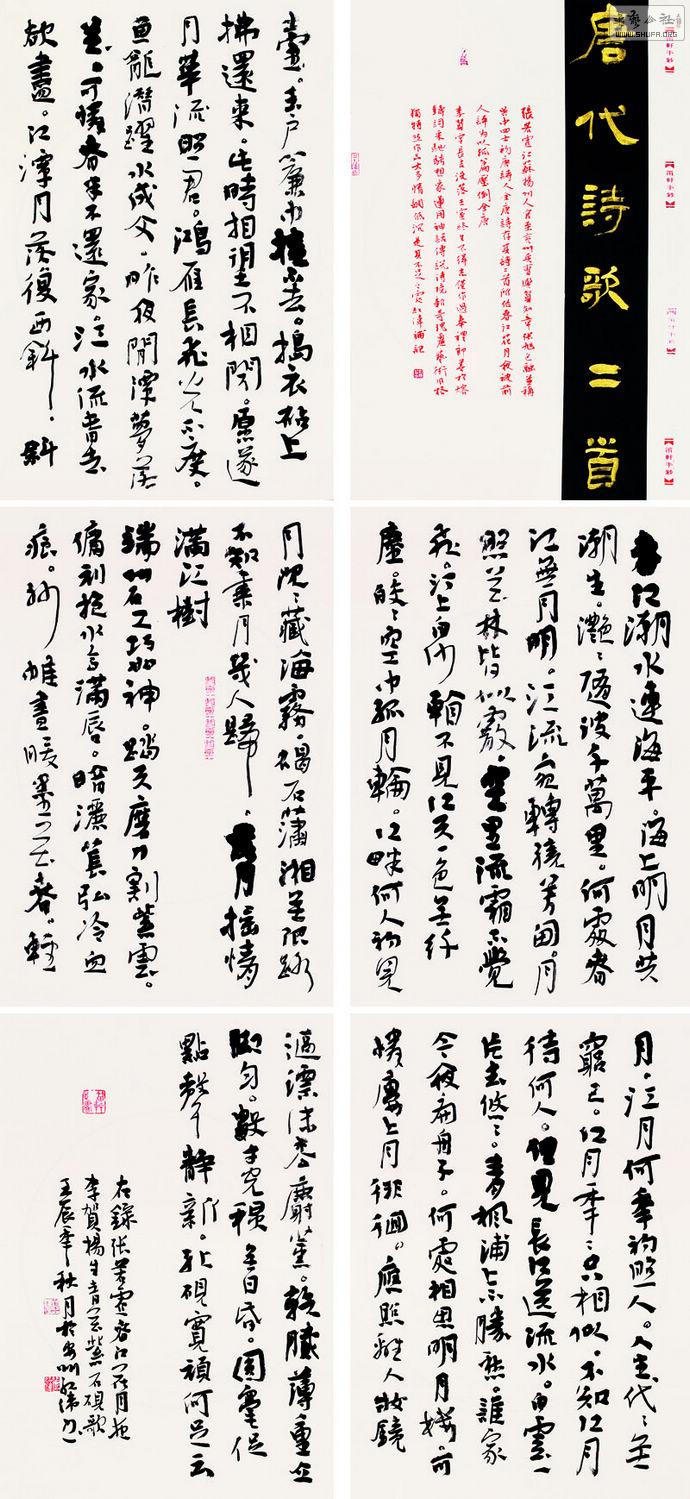 唐代詩歌二首
張若虛江蘇揚州人官至兗州兵曹與賀知章張旭包融並稱
吳中四士初唐詩人全唐詩存其詩二首僅春江花月夜被前
人譽為以孤篇壓倒全唐
李賀字長吉沒落王室終生不得志僅作過奉禮郎善於熔
鑄詞采馳騁想象運用神話傳說詩境新奇瑰麗藝術風格
獨特然作品大多情調低沉是其不足之處紅偉補記
春江潮水連海平。海上明月共
潮生。灩々隨波千萬里。何處春
江無月明。江流宛轉繞芳甸。月
照花林皆似霰。空里流霜不覺
飛。汀上白沙看不見江天一色無纖
塵。皎々空中孤月輪。江畔何人初見
月。江月何年初照人。人生代々無
窮已。江月年々只相似。不知江月
待何人。但見長江送流水。白雲一
片去悠々。青楓浦上不勝愁。誰家
今夜扁舟子。何處相思明月樓。可
憐樓上月徘徊。應照離人妝鏡
臺。玉戶簾中捲不去。搗衣砧上
拂還來。此時相望不相聞。願逐
月華流照君。鴻雁長飛光不度。
魚龍潛躍水成文。昨夜閒潭夢落
花。可憐春半不還家。江水流春去
欲盡。江潭月落復西斜。斜
月沉々藏海霧。碣石瀟湘無限路
不知乘月幾人歸。落月搖情
滿江樹
端州石工巧如神。踏天磨刀割紫雲。
傭刓抱水含滿唇。暗灑萇弘冷血
痕。紗帷晝暖墨花春。輕
漚漂沫松麝薰。乾膩薄重立
腳勻。數寸光秋無日昏。圓毫促
點聲靜新。孔硯寬頑何足云
右錄張若虛春江花月夜
李賀楊生青花紫石硯歌
壬辰年秋月於州紅偉書
WWW.SHUFA.ORG